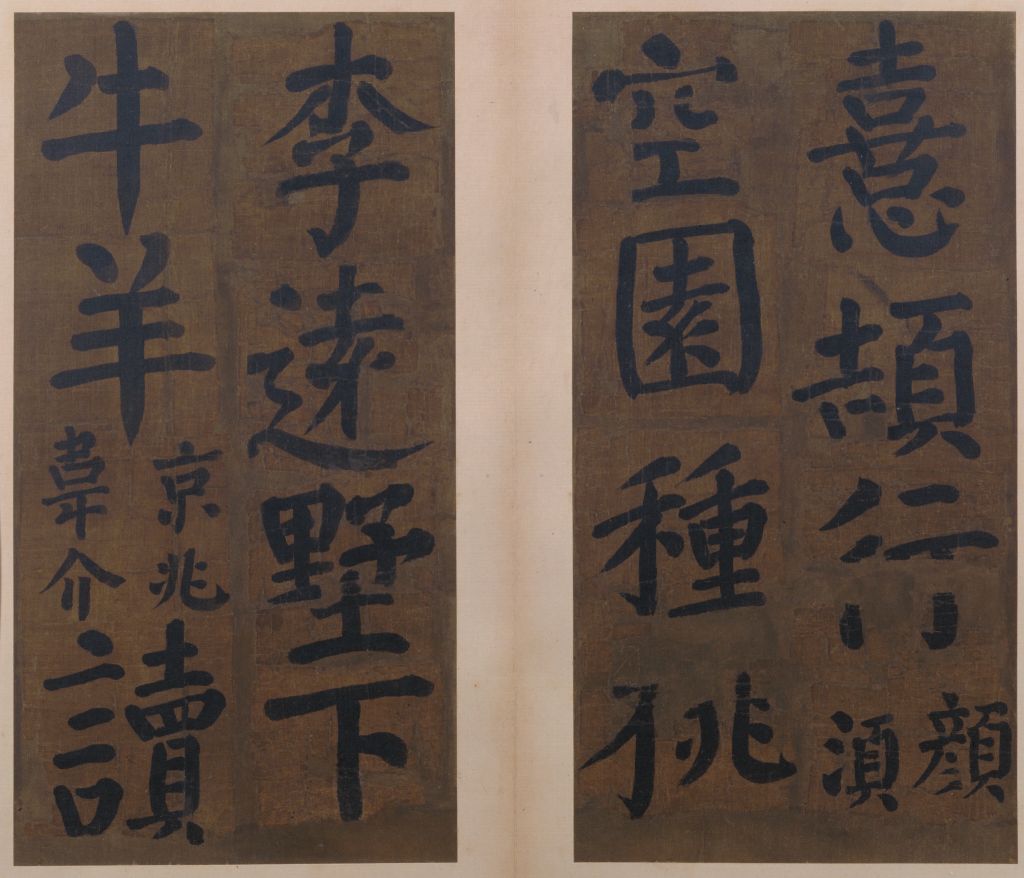 憙頡行顏須
空園種桃
李遠墅下
牛羊京兆韋介讀